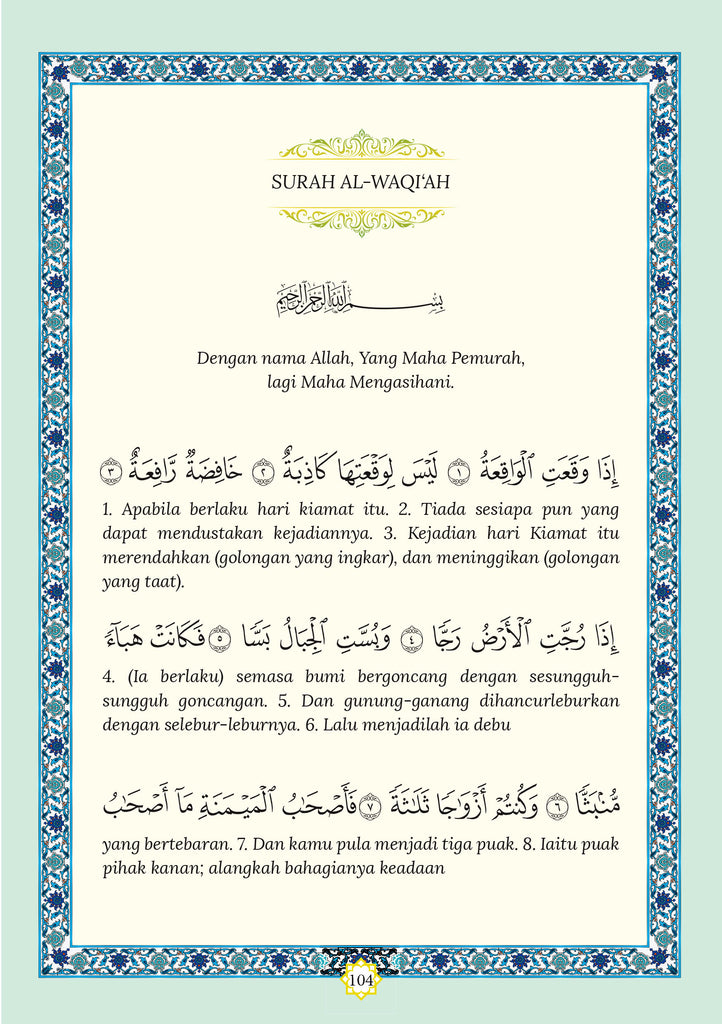 SURAH AL-WAQI‘AH
بِسْمِ ٱللَّهِ ٱلرَّحْمَٰنِ ٱلرَّحِيمِ
Dengan nama Allah, Yang Maha Pemurah,
lagi Maha Mengasihani.
إِذَا وَقَعَتِ ٱلْوَاقِعَةُ ١ لَيْسَ لِوَقْعَتِهَا كَاذِبَةٌ ٢ خَافِضَةٌ رَّافِعَةٌ ٣
1. Apabila berlaku hari kiamat itu. 2. Tiada sesiapa pun yang
dapat mendustakan kejadiannya. 3. Kejadian hari Kiamat itu
merendahkan (golongan yang ingkar), dan meninggikan (golongan
yang taat).
إِذَا رُجَّتِ ٱلْأَرْضُ رَجًّا ٤ وَبُسَّتِ ٱلْجِبَالُ بَسًّا ٥ فَكَانَتْ هَبَآءً
4. (Ia berlaku) semasa bumi bergoncang dengan sesungguh-
sungguh goncangan. 5. Dan gunung-ganang dihancurleburkan
dengan selebur-leburnya. 6. Lalu menjadilah ia debu
مُّنۢبَثًّا ٦ وَكُنتُمْ أَزْوَٰجًا ثَلَٰثَةً ٧ فَأَصْحَٰبُ ٱلْمَيْمَنَةِ مَآ أَصْحَٰبُ
yang bertebaran. 7. Dan kamu pula menjadi tiga puak. 8. Iaitu puak
pihak kanan; alangkah bahagianya keadaan
104